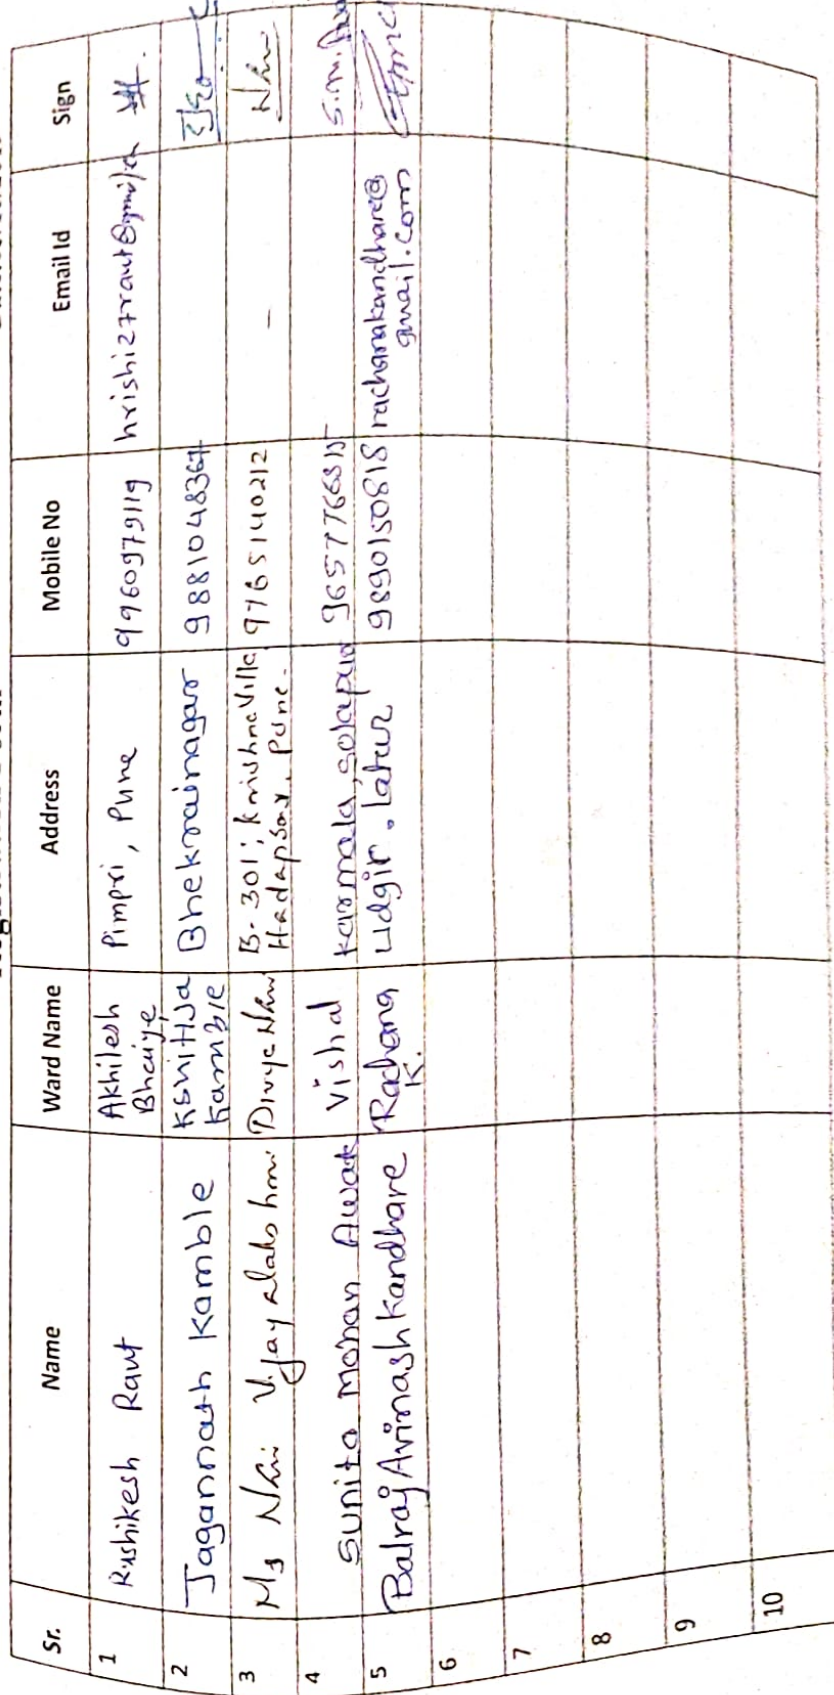 Sr. Name Ward Name Address Mobile No Email Id Sign
1 Rushikesh Raut Akhilesh Bhaiye Pimpri, Pune 9960979119 hrishi27raut@gmail.com
2 Jagannath Kamble Kshitija Kamble Bhekrainagar 9881048367
3 Ms Nair Vijayalakshmi Divya Nair B-301, Krishna Ville, Hadapsar, Pune. 9765140212 -
4 Sunita Mohan Awat Vishal Karmala, Solapur S.M.
5 Balraj Avinash Kandhare Rachana K. Udgir. Latur 9890150818 rachanakandhare@gmail.com
6
7
8
9
10